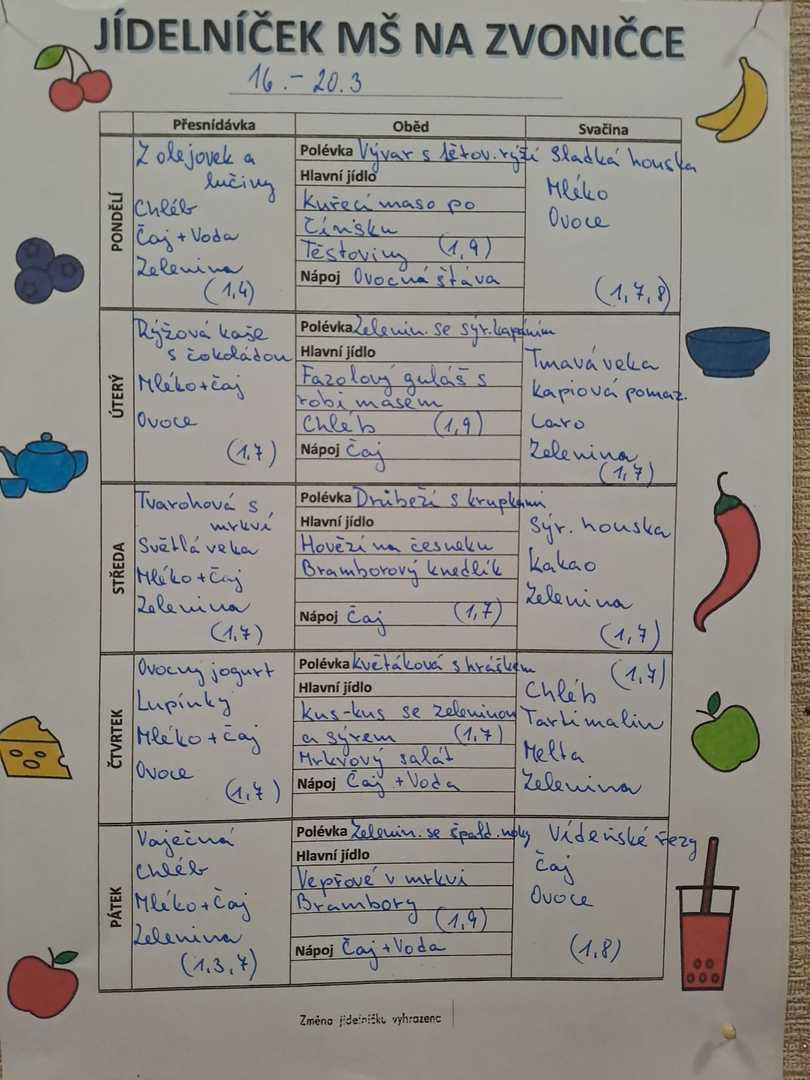 JÍDELNÍČEK MŠ NA ZVONIČCE
16.–20.3
Přesnídávka
Oběd
Svačina
PONDĚLÍ
Z olejovek a
lučiny
Chléb
Čaj + Voda
Zelenina
(1,4)
Polévka Vývar s těstov. rýží
Hlavní jídlo
Kuřecí maso po
čínsku
Těstoviny (1,9)
Nápoj Ovocná štáva
Sladká houska
Mléko
Ovoce
(1,7,8)
ÚTERÝ
Rýžová kaše
s čokoládou
Mléko+čaj
Ovoce
(1,7)
Polévka Zelenin. se sýr. kapáním
Hlavní jídlo
Fazolový guláš s
robi masem
Chléb (1,9)
Nápoj Čaj
Tmavá veka
Kapiová pomaz.
Caro
Zelenina
(1,7)
STŘEDA
Tvarohová s
mrkví
Světlá veka
Mléko+čaj
Zelenina
(1,7)
Polévka Drůbeží s krupkami
Hlavní jídlo
Hovězí na česneku
Bramborový knedlík
Nápoj Čaj (1,7)
Sýr. houska
Kakao
Zelenina
(1,7)
ČTVRTEK
Ovocný jogurt
Lupínky
Mléko + čaj
Ovoce
(1,7)
Polévka Květáková s hráškem
Hlavní jídlo
Kus-kus se zeleninou
a sýrem (1,7)
Mrkvový salát
Nápoj Čaj + Voda
(1,7)
Chléb
Tartimalin
Melta
Zelenina
PÁTEK
Vaječná
Chléb
Mléko+čaj
Zelenina
(1,3,7)
Polévka Zelenin. se špald. noky
Hlavní jídlo
Vepřové v mrkvi
Brambory
(1,9)
Nápoj Čaj + Voda
Vídeňské řezy
Čaj
Ovoce
(1,8)
Změna jídelníčku vyhrazena